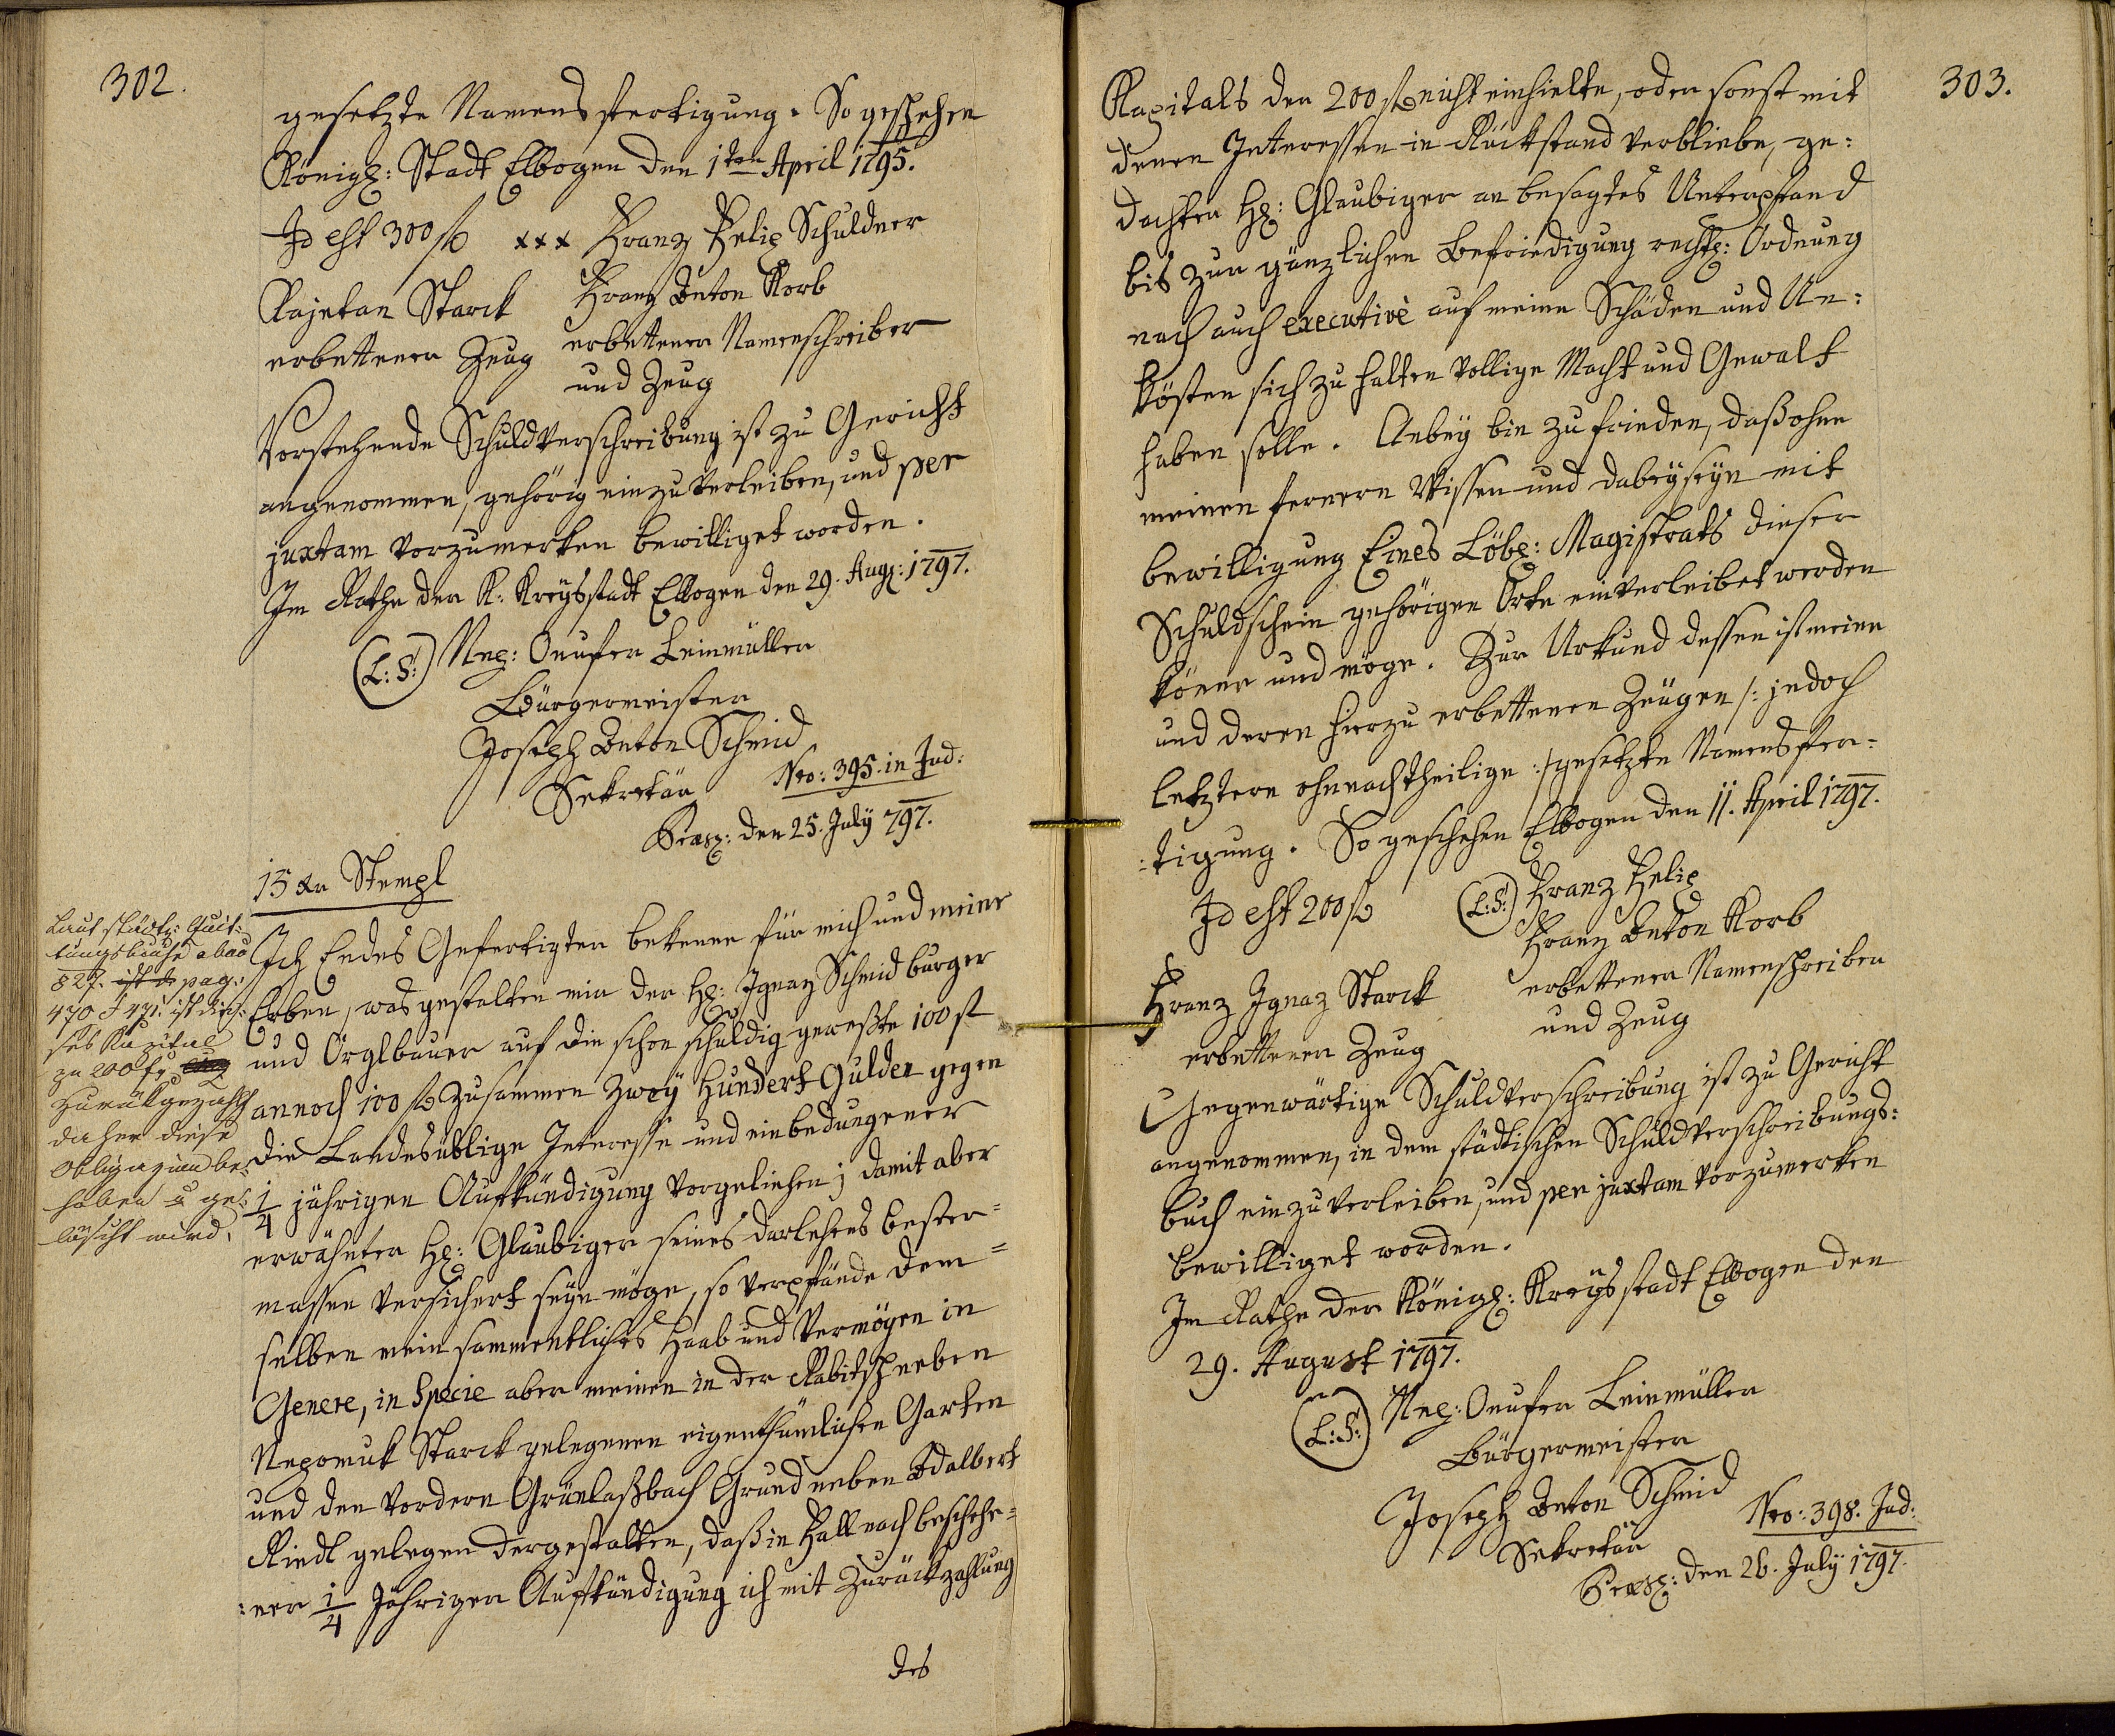 302.
gesetzte Namens fertigung. So geschehen
Königl: Stadt Elbogen den 1ten April 1795.
Id est 300 fl xxx Franz Felix Schuldner
Kajetan Starck Franz Anton Korb
erbettener Zeug erbettener Namenschreiber
und Zeug
Vorstehende Schuldverschreibung ist zu Gericht
angenommen, gehörig einzuverleiben, und per
juxtam vorzumerken bewilliget worden.
Im Rathe der K: Kreÿsstadt Elbogen den 29. Aug: 1797.
(L:S:) Onufer Leinmüller
Bürgermeister
Joseph Anton Schmid
Sekretär Nro: 395. in Jud:
Praes: den 25. Julÿ 797.
15 xr Stempl
Laut städt: Quit:
tungsbuche
827. pag:
470 & 471. ist die:
ses Kapital
zu 200 f
zurückgezahlt
daher diese
Obligazion be:
hoben u ge:
löscht wird.
Ich Endes Gefertigter bekenne für mich und meine
Erben, was gestalten mir der H: Ignaz Schmid burger
und Orglbauer auf die schon schuldig geweßte 100 fl
annoch 100 fl zusammen Zweÿ Hundert Gulden gegen
die Landesüblige Interesse und einbedungener
1/4 jährigen Aufkündigung vorgeliehen; damit aber
erwähnter H: Glaubiger seines darlehens bester=
massen versichert seÿn möge, so verpfände dem=
selben mein sammentliches Haab und Vermögen in
Genere, in Specie aber meinen in der Rabitsch neben
Nepomuk Starck gelegenen eigenthümlichen Garten
und den vordern Grünlaßbach Grund neben Adalbert
Riedl gelegen dergestalten, daß in Fall nach beschehe=
:ner 1/4 Jährigen Aufkündigung ich mit Zurückzahlung
des
303.
Kapitals der 200 fl nicht einhielte, oder sonst mit
denen Interessen in Rückstand verbliebe, ge:
dachter H: Glaubiger an besagtes Unterpfand
bis zur gänzlichen Befriedigung rechtl: Ordnung
nach auch executivè auf meine Schäden und Un:
kösten sich zu halten vollige Macht und Gewalt
haben solle. Anbeÿ bin zufrieden, daß ohne
meinen fernern Wissen und dabeÿseÿn mit
bewilligung Eines Löbl: Magistrats dieser
Schuldschein gehörigen Orte einverleibet werden
köner und möge. Zur Urkund dessen ist meine
und deren hierzu erbettenen Zeugen /: jedoch
letztern ohnnachtheilige :/ gesetzte Namens fer=
:tigung. So geschehen Elbogen den 11. April 1797.
Id est 200 fl (L:S:) Franz Felix
Franz Anton Korb
Franz Ignaz Starck erbettener Namenschreiber
erbettener Zeug und Zeug
Gegenwärtige Schuldverschreibung ist zu Gericht
angenommen, in dem städtischen Schuldverschreibungs:
buch einzuverleiben, und per juxtam vorzumerken
bewilliget worden.
Im Rathe der Königl: Kreÿsstadt Elbogen den
29. August 1797.
(L:S:) Onufer Leinmüller
Bürgermeister
Joseph Anton Schmid
Sekretär Nro: 398. Jud:
Praes: den 26. Julÿ 1797.